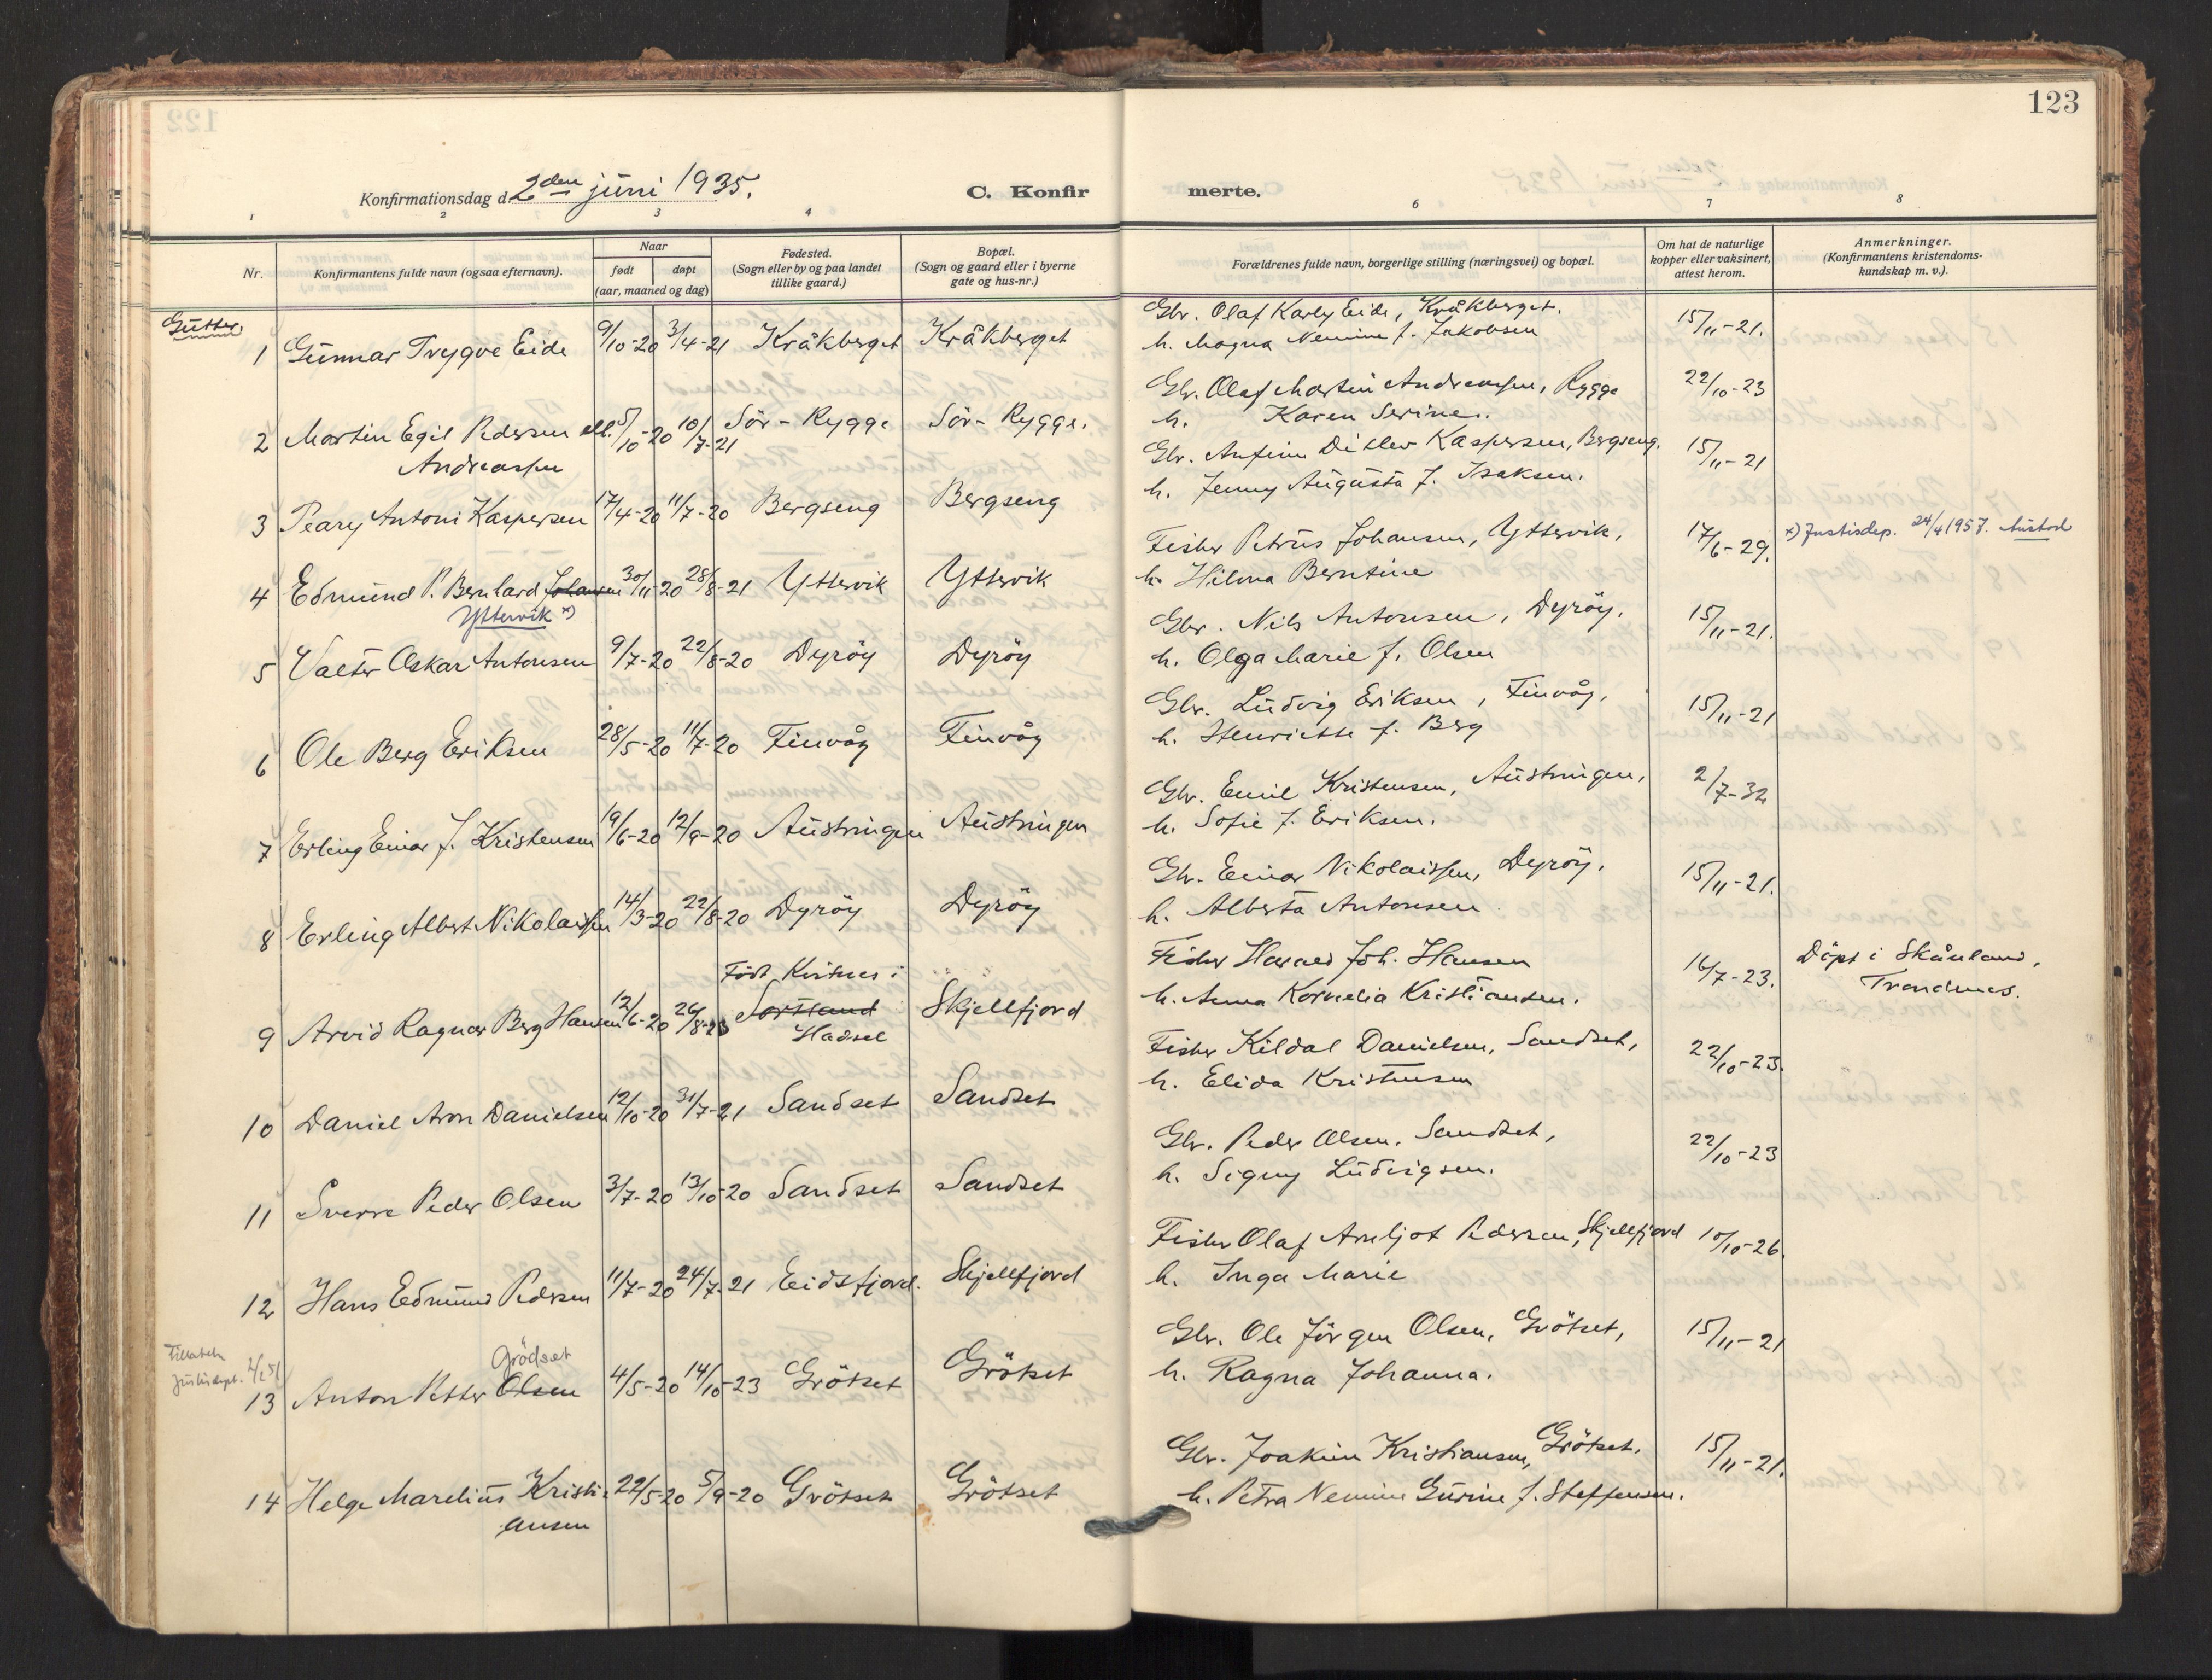 123
Konfirmationsdag d. 2den juni 1935.
C. Konfirmerte.
1 2 3 4 6 7 8
Nr.
Konfirmantens fulde navn (ogsaa efternavn).
Naar
født døpt
(aar, maaned og dag)
Fødested.
(Sogn eller by og paa landet
tillike gaard.)
Bopæl.
(Sogn og gaard eller i byerne
gate og hus-nr.)
Forældrenes fulde navn, borgerlige stilling (næringsvei) og bopæl.
Om hat de naturlige
kopper eller vaksinert,
attest herom.
Anmerkninger.
(Konfirmantens kristendoms-
kundskap m. v.).
Gutter
1 Gunnar Trygve Eide 9/10-20 3/4-21 Kråkberget Kråkberget
Gbr. Olaf Karly Eide, Kråkberget.
h. Magna Nennine f. Jakobsen
15/11-21.
2 Martin Egil Pedersen ell. 5/10-20 10/7-21 Sör-Rygge Sör-Rygge.
Andreassen
Gbr. Olaf Martin Andreassen, Rygge
h. Karen Serine.
22/10-23
3 Peary Antoni Kaspersen 17/4-20 11/7-20 Bergseng Bergseng
Gbr. Anfinn Ditlev Kaspersen, Bergseng.
h. Jenny Augusta f. Isaksen.
15/11-21
4 Edmund P. Bernhard Johansen 30/11-20 28/8-21 Yttervik Yttervik
Yttervik x)
Fisker Petrus Johansen, Yttervik,
h. Hilma Berntine
17/6-29.
x) Justisdep. 24/4 1957.
5 Valter Oskar Antonsen 9/7-20 22/8-20 Dyröy Dyröy
Gbr. Nils Antonsen, Dyröy.
h. Olga Marie f. Olsen
15/11-21.
6 Ole Berg Eriksen 28/5-20 11/7-20 Finvåg Finvåg
Gbr. Ludvig Eriksen, Finvåg,
h. Henriette f. Berg
15/11-21
7 Erling Einar J. Kristensen 19/6-20 12/9-20 Austringen Austringen
Gbr. Emil Kristensen, Austringen,
h. Sofie f. Eriksen.
2/7-32
8 Erling Albert Nikolaissen 14/3-20 22/8-20 Dyröy Dyröy
Gbr. Einar Nikolaissen, Dyröy.
h. Alberta Antonsen.
15/11-21.
Födt Kvitnes i
9 Arvid Ragnar Berg Hansen 12/6-20 26/8-23 Sortland Skjellfjord
Hadsel
Fisker Harald Joh. Hansen
h. Anna Kornelia Kristiansen.
16/7-23.
Döpt i Skånland,
Trondenes.
10 Daniel Aron Danielsen 12/10-20 31/7-21 Sandset Sandset
Fisker Kildal Danielsen, Sandset,
h. Elida Kristensen
22/10-23.
11 Sverre Peder Olsen 3/7-20 13/10-20 Sandset Sandset
Gbr. Peder Olsen, Sandset,
h. Signy Ludvigsen.
22/10-23
12 Hans Edmund Pedersen 11/7-20 24/7-21 Eidsfjord. Skjellfjord
Fisker Olaf Arnljot Pedersen, Skjellfjord
h. Inga Marie
10/10-26.
Justisdept.
Grödset
13 Anton Petter Olsen 4/5-20 14/10-23 Grötset Grötset
Gbr. Ole Jörgen Olsen, Grötset,
h. Ragna Johanna.
15/11-21
14 Helge Marelius Kristi- 22/5-20 5/9-20 Grötset Grötset
ansen
Gbr. Joakim Kristiansen, Grötset.
h. Petra Nennine Gurine f. Steffensen.
15/11-21.